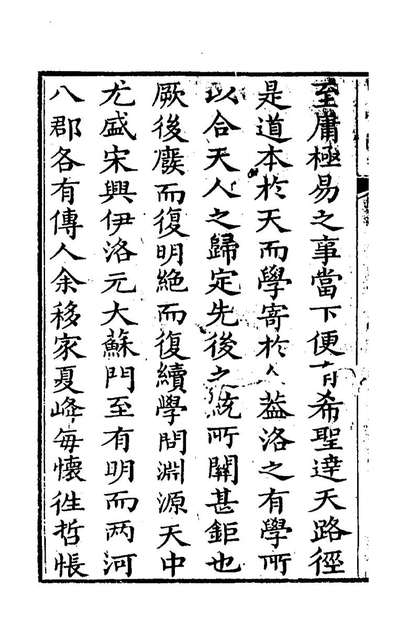 至庸極易之事當下便有希聖達天路徑
是道本於天而學寄於人蓋洛之有學所
以合天人之歸定先後之統所關甚鉅也
厥後廢而復明絕而復續學問淵源天中
尤盛宋興伊洛元大蘇門至有明而两河
八郡各有傳人余移家夏峰每懷徃哲悵